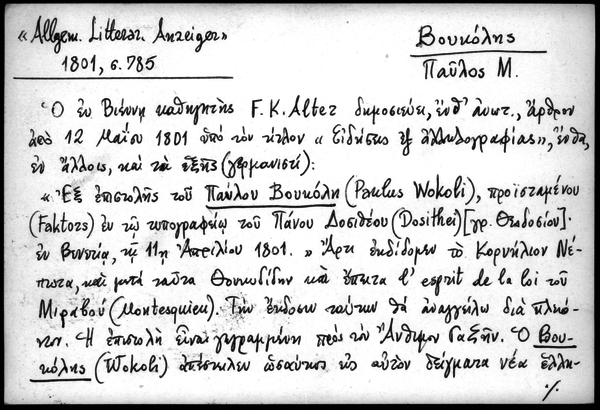 «Allgem. Litterar. Anzeiger»
1801, σ. 785
Βουκόλης
Παῦλος Μ.
Ὁ ἐν Βιέννῃ καθηγητὴς F. K. Alter δημοσιεύει, ἔνθ' ἀνωτ., ἄρθρον
ἀπὸ 12 Μαΐου 1801 ὑπὸ τὸν τίτλον «Εἰδήσεις ἐξ ἀλληλογραφίας», ἔνθα,
ἐν ἄλλοις, καὶ τὰ ἑξῆς (γερμανιστί):
«Ἐξ ἐπιστολῆς τοῦ Παύλου Βουκόλη (Paulus Wokoli), προϊσταμένου
(Faktors) ἐν τῷ τυπογραφείῳ τοῦ Πάνου Δοσιθέου (Dosithei) [γρ. Θεοδοσίου].
ἐν Βενετίᾳ, τῇ 11ῃ Ἀπριλίου 1801. «Ἄρτι ἐκδίδομεν τὸ Κορνήλιον Νέ-
πωτα, καὶ μετὰ ταῦτα Θουκυδίδην καὶ ἔπειτα l'esprit de la loi τοῦ
Μιραβού (Montesquieu). Τὴν ἔκδοσιν τούτων θὰ ἀναγγείλω διὰ πλειό-
νων. Ἡ ἐπιστολὴ εἶναι γεγραμμένη πρὸς τὸν Ἄνθιμον Γαζῆν. Ὁ Βου-
κόλης (Wokoli) ἀπέστειλεν ὡσαύτως εἰς αὐτὸν δείγματα νέα ἑλλη-
./.